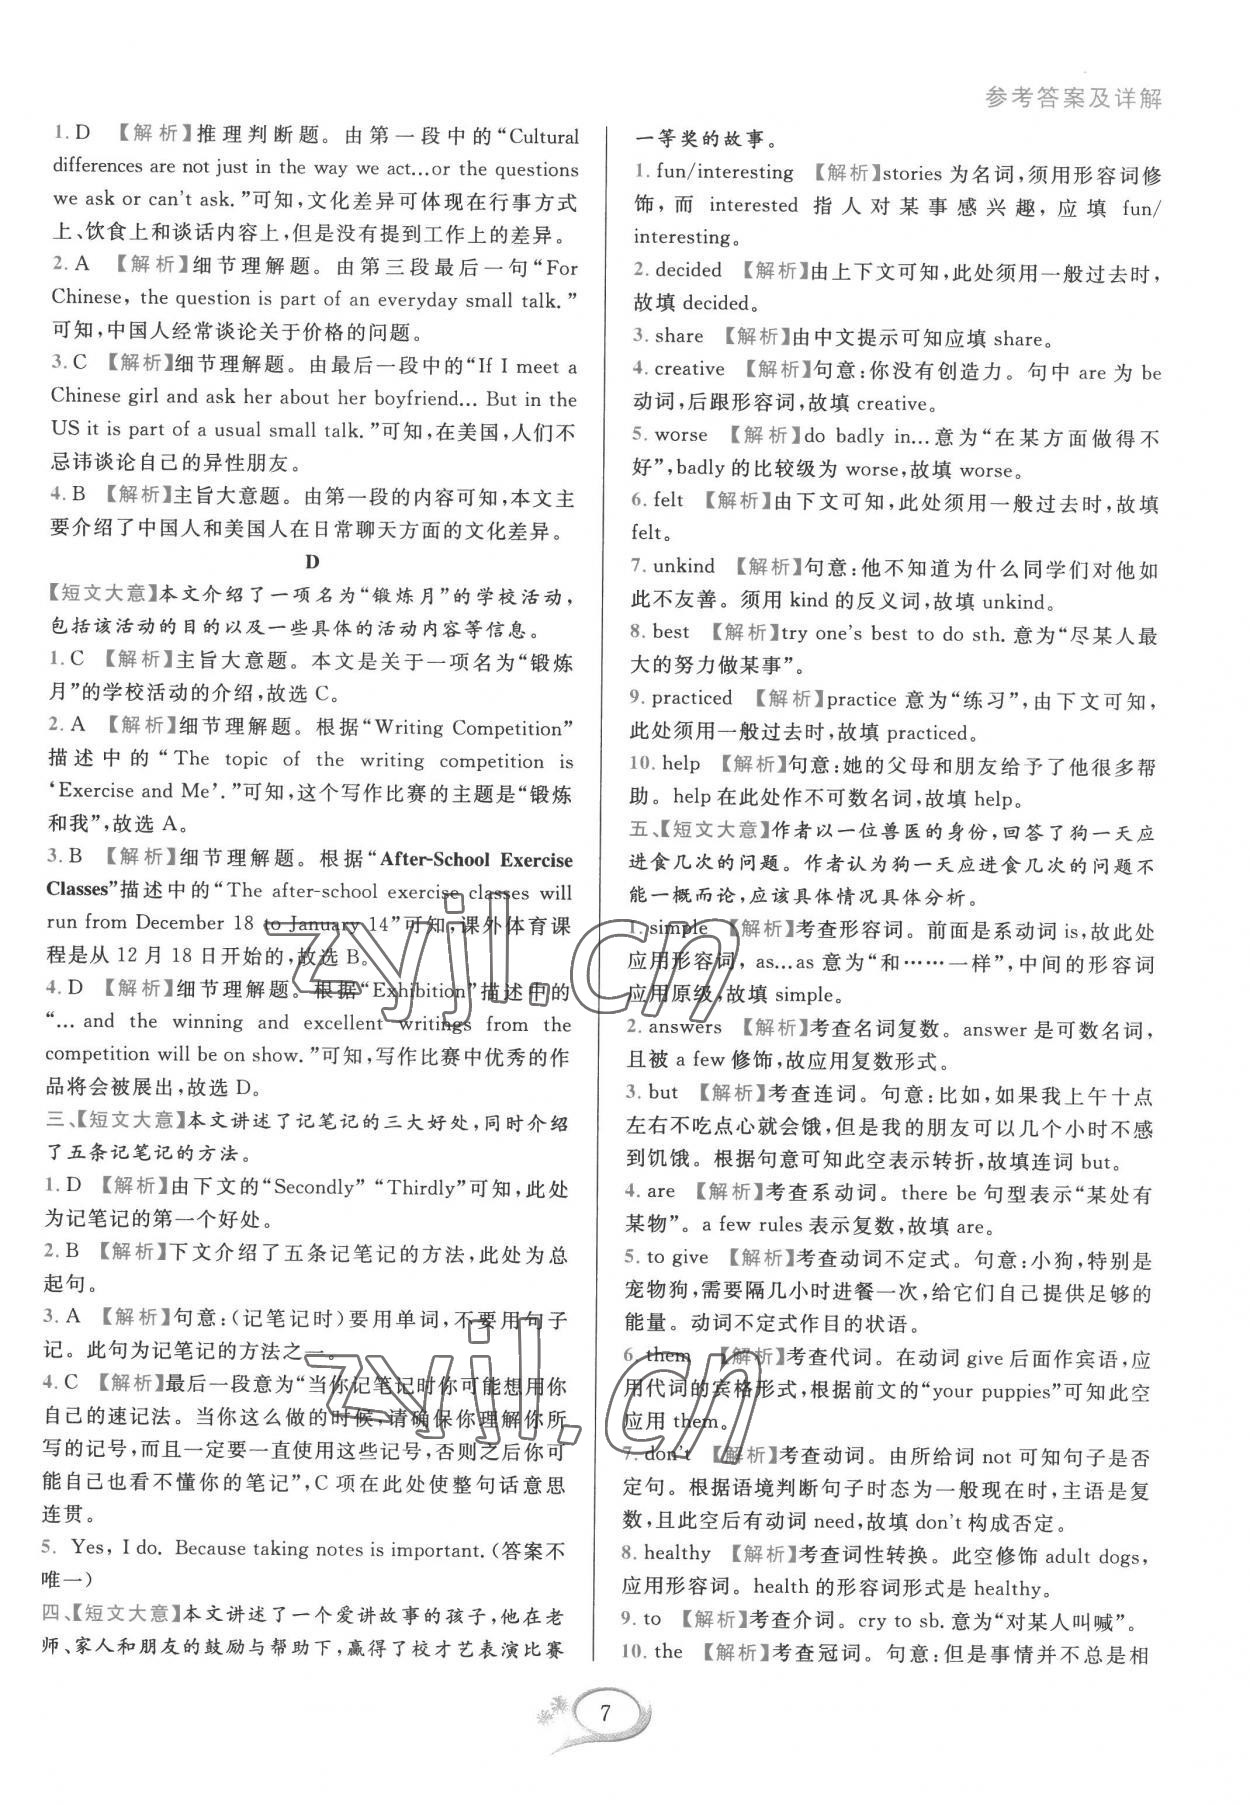 参考答案及详解
1. D 【解析】推理判断题。由第一段中的“Cultural
differences are not just in the way we act...or the questions
we ask or can't ask.”可知,文化差异可体现在行事方式
上、饮食上和谈话内容上,但是没有提到工作上的差异。
2. A 【解析】细节理解题。由第三段最后一句“For
Chinese, the question is part of an everyday small talk.”
可知,中国人经常谈论关于价格的问题。
3. C 【解析】细节理解题。由最后一段中的“If I meet a
Chinese girl and ask her about her boyfriend... But in the
US it is part of a usual small talk.”可知,在美国,人们不
忌讳谈论自己的异性朋友。
4. B 【解析】主旨大意题。由第一段的内容可知,本文主
要介绍了中国人和美国人在日常聊天方面的文化差异。
D
【短文大意】本文介绍了一项名为“锻炼月”的学校活动,
包括该活动的目的以及一些具体的活动内容等信息。
1. C 【解析】主旨大意题。本文是关于一项名为“锻炼
月”的学校活动的介绍,故选 C。
2. A 【解析】细节理解题。根据“Writing Competition”
描述中的“The topic of the writing competition is
‘Exercise and Me’.”可知,这个写作比赛的主题是“锻炼
和我”,故选 A。
3. B 【解析】细节理解题。根据“After-School Exercise
Classes”描述中的“The after-school exercise classes will
run from December 18 to January 14”可知,课外体育课
程是从 12 月 18 日开始的,故选 B。
4. D 【解析】细节理解题。根据“Exhibition”描述中的
“... and the winning and excellent writings from the
competition will be on show.”可知,写作比赛中优秀的作
品将会被展出,故选 D。
三、【短文大意】本文讲述了记笔记的三大好处,同时介绍
了五条记笔记的方法。
1. D 【解析】由下文的“Secondly” “Thirdly”可知,此处
为记笔记的第一个好处。
2. B 【解析】下文介绍了五条记笔记的方法,此处为总
起句。
3. A 【解析】句意:(记笔记时)要用单词,不要用句子
记。此句为记笔记的方法之一。
4. C 【解析】最后一段意为“当你记笔记时你可能想用你
自己的速记法。当你这么做的时候,请确保你理解你所
写的记号,而且一定要一直使用这些记号,否则之后你可
能自己也看不懂你的笔记”,C 项在此处使整句话意思
连贯。
5. Yes, I do. Because taking notes is important. (答案不
唯一)
四、【短文大意】本文讲述了一个爱讲故事的孩子,他在老
师、家人和朋友的鼓励与帮助下,赢得了校才艺表演比赛
一等奖的故事。
1. fun/interesting 【解析】stories 为名词,须用形容词修
饰,而 interested 指人对某事感兴趣,应填 fun/
interesting。
2. decided 【解析】由上下文可知,此处须用一般过去时,
故填 decided。
3. share 【解析】由中文提示可知应填 share。
4. creative 【解析】句意:你没有创造力。句中 are 为 be
动词,后跟形容词,故填 creative。
5. worse 【解析】do badly in...意为“在某方面做得不
好”,badly 的比较级为 worse,故填 worse。
6. felt 【解析】由下文可知,此处须用一般过去时,故填
felt。
7. unkind 【解析】句意:他不知道为什么同学们对他如
此不友善。须用 kind 的反义词,故填 unkind。
8. best 【解析】try one's best to do sth. 意为“尽某人最
大的努力做某事”。
9. practiced 【解析】practice 意为“练习”,由下文可知,
此处须用一般过去时,故填 practiced。
10. help 【解析】句意:她的父母和朋友给予了他很多帮
助。help 在此处作不可数名词,故填 help。
五、【短文大意】作者以一位兽医的身份,回答了狗一天应
进食几次的问题。作者认为狗一天应进食几次的问题不
能一概而论,应该具体情况具体分析。
1. simple 【解析】考查形容词。前面是系动词 is,故此处
应用形容词,as...as 意为“和……一样”,中间的形容词
应用原级,故填 simple。
2. answers 【解析】考查名词复数。answer 是可数名词,
且被 a few 修饰,故应用复数形式。
3. but 【解析】考查连词。句意:比如,如果我上午十点
左右不吃点心就会饿,但是我的朋友可以几个小时不感
到饥饿。根据句意可知此空表示转折,故填连词 but。
4. are 【解析】考查系动词。there be 句型表示“某处有
某物”。a few rules 表示复数,故填 are。
5. to give 【解析】考查动词不定式。句意:小狗,特别是
宠物狗,需要隔几小时进餐一次,给它们自己提供足够的
能量。动词不定式作目的状语。
6. them 【解析】考查代词。在动词 give 后面作宾语,应
用代词的宾格形式,根据前文的“your puppies”可知此空
应用 them。
7. don't 【解析】考查动词。由所给词 not 可知句子是否
定句。根据语境判断句子时态为一般现在时,主语是复
数,且此空后有动词 need,故填 don't 构成否定。
8. healthy 【解析】考查词性转换。此空修饰 adult dogs,
应用形容词。health 的形容词形式是 healthy。
9. to 【解析】考查介词。cry to sb. 意为“对某人叫喊”。
10. the 【解析】考查冠词。句意:但是事情并不总是相
zyjl.cn
zyjl.cn
7